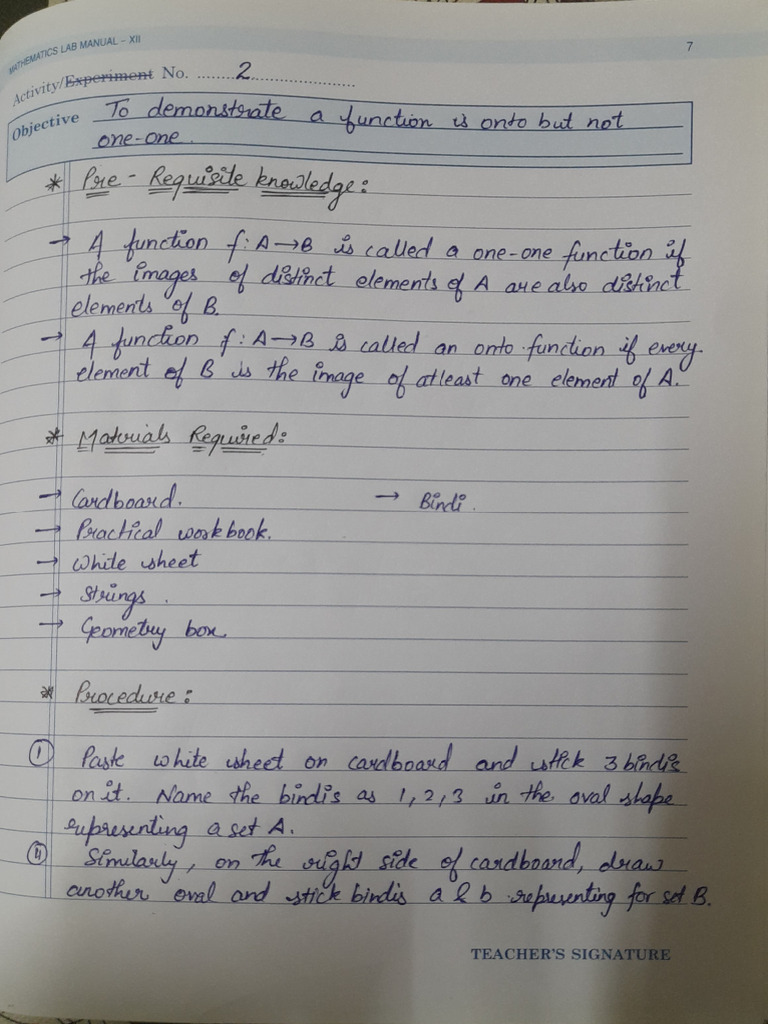 MATHEMATICS LAB MANUAL – XII
7
Activity/Experiment No. ........2........................
Objective To demonstrate a function is onto but not
one-one.
* Pre - Requisite knowledge:
→ A function f: A→B is called a one-one function if
the images of distinct elements of A are also distinct
elements of B.
→ A function f: A→B is called an onto function if every
element of B is the image of atleast one element of A.
* Materials Required:
→ Cardboard. → Bindi.
→ Practical workbook.
→ White sheet
→ Strings.
→ Geometry box
* Procedure:
I Paste white sheet on cardboard and stick 3 bindis
on it. Name the bindis as 1, 2, 3 in the oval shape
representing a set A.
II Similarly, on the right side of cardboard, draw
another oval and stick bindis a & b representing for set B.
TEACHER'S SIGNATURE